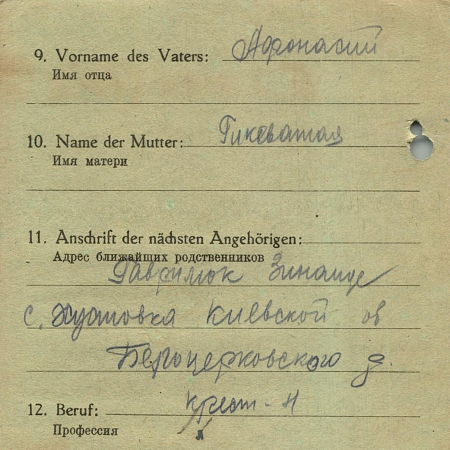 9. Vorname des Vaters: Афонасий
Имя отца
10. Name der Mutter: Гикеватая
Имя матери
11. Anschrift der nächsten Angehörigen:
Адрес ближайших родственников
Гаврилюк Зинаиде
с. Киевской об
Белоцерковского
12. Beruf: крест-н
Профессия